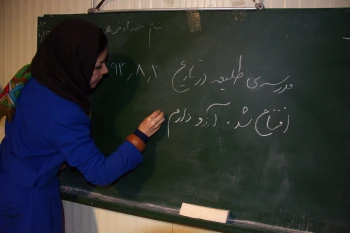 مدرسه‌ی طلیعه در تاریخ ۹۳,۸,۳
افتتاح شد. آرزو دارم